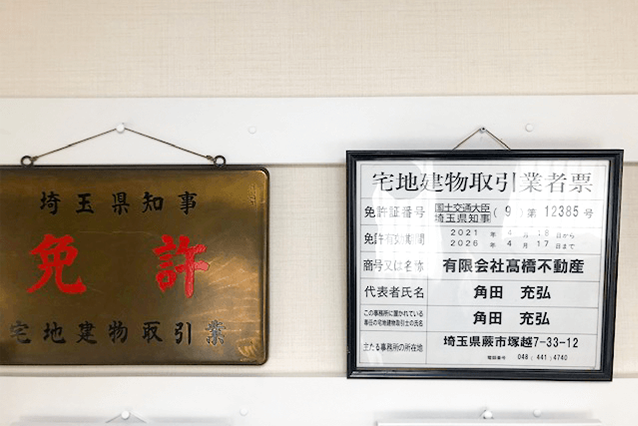 埼玉県知事
免許
宅地建物取引業
宅地建物取引業者票
免許証番号 国土交通大臣 埼玉県知事 (9)第12385号
免許有効期間 2021年4月18日から
2026年4月17日まで
商号又は名称 有限会社髙橋不動産
代表者氏名 角田 充弘
この事務所に置かれている
専任の宅地建物取引士の氏名 角田 充弘
主たる事務所の所在地 埼玉県蕨市塚越7-33-12
電話番号 048(441)4740